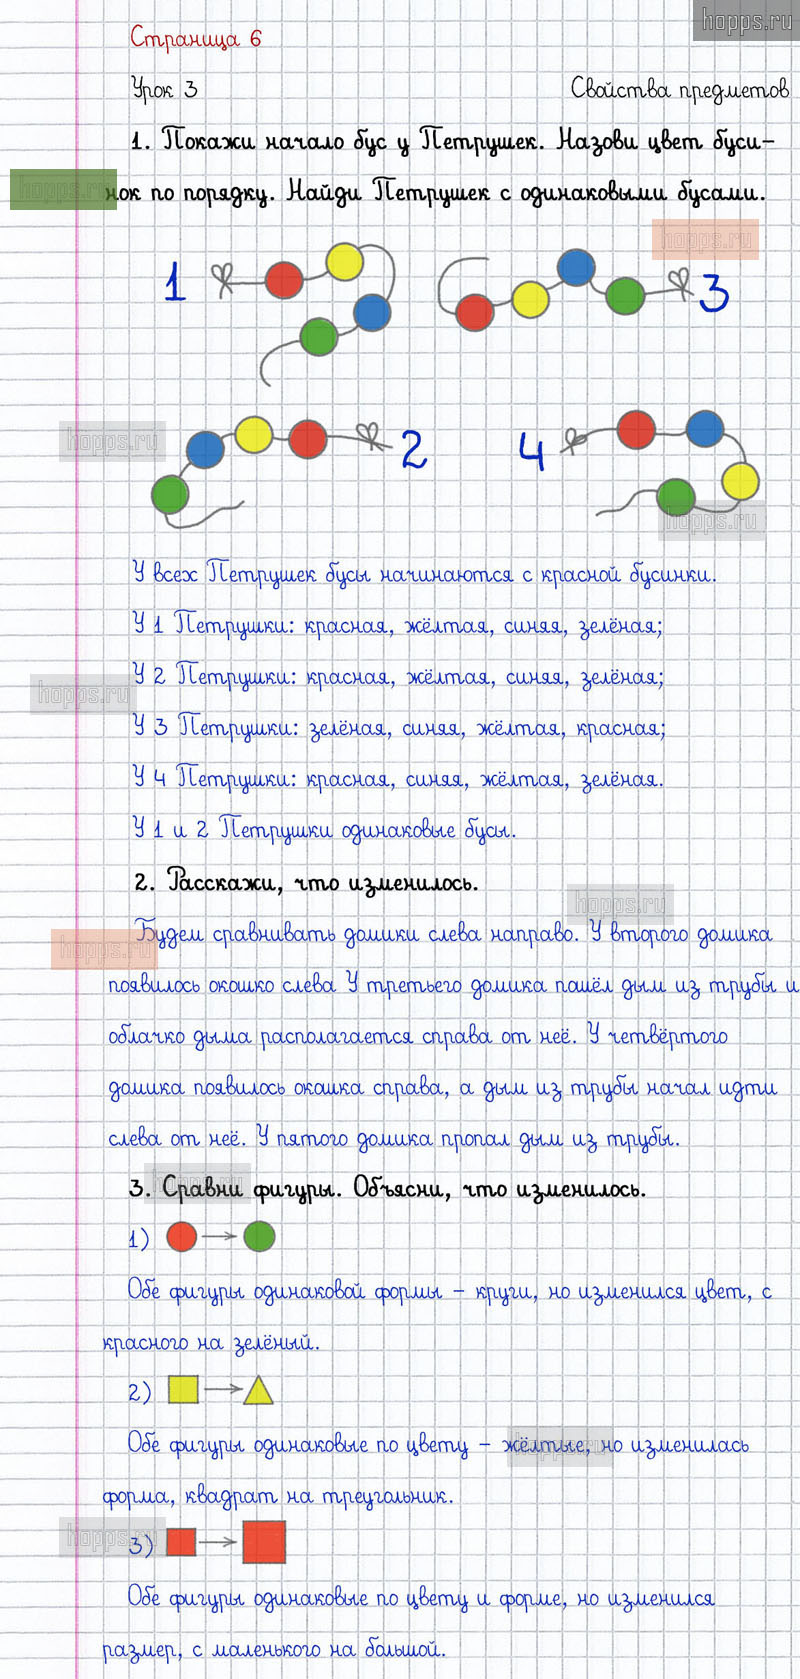 hopps.ru
Страница 6
Урок 3 Свойства предметов
1. Покажи начало бус у Петрушек. Назови цвет буси-
hopps.ru
нок по порядку. Найди Петрушек с одинаковыми бусами.
hopps.ru
1 3
hopps.ru
2 4
hopps.ru
У всех Петрушек бусы начинаются с красной бусинки.
У 1 Петрушки: красная, жёлтая, синяя, зелёная;
У 2 Петрушки: красная, жёлтая, синяя, зелёная;
hopps.ru
У 3 Петрушки: зелёная, синяя, жёлтая, красная;
У 4 Петрушки: красная, синяя, жёлтая, зелёная.
У 1 и 2 Петрушки одинаковые бусы.
2. Расскажи, что изменилось.
hopps.ru
Будем сравнивать домики слева направо. У второго домика
hopps.ru
появилось окошко слева У третьего домика пошёл дым из трубы и
облачко дыма располагается справа от неё. У четвёртого
домика появилось окошка справа, а дым из трубы начал идти
слева от неё. У пятого домика пропал дым из трубы.
hopps.ru
3. Сравни фигуры. Объясни, что изменилось.
1)
Обе фигуры одинаковой формы – круги, но изменился цвет, с
красного на зелёный.
2)
Обе фигуры одинаковые по цвету – жёлтые, но изменилась
hopps.ru
форма, квадрат на треугольник.
hopps.ru
3)
Обе фигуры одинаковые по цвету и форме, но изменился
размер, с маленького на большой.